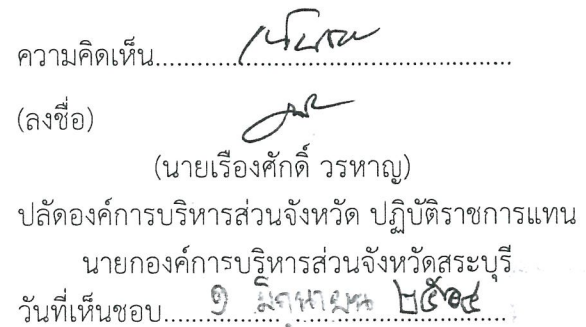 ความคิดเห็น........เห็นชอบ........
(ลงชื่อ)
(นายเรืองศักดิ์ วรหาญ)
ปลัดองค์การบริหารส่วนจังหวัด ปฏิบัติราชการแทน
นายกองค์การบริหารส่วนจังหวัดสระบุรี
วันที่เห็นชอบ.....๑ มิถุนายน ๒๕๖๔